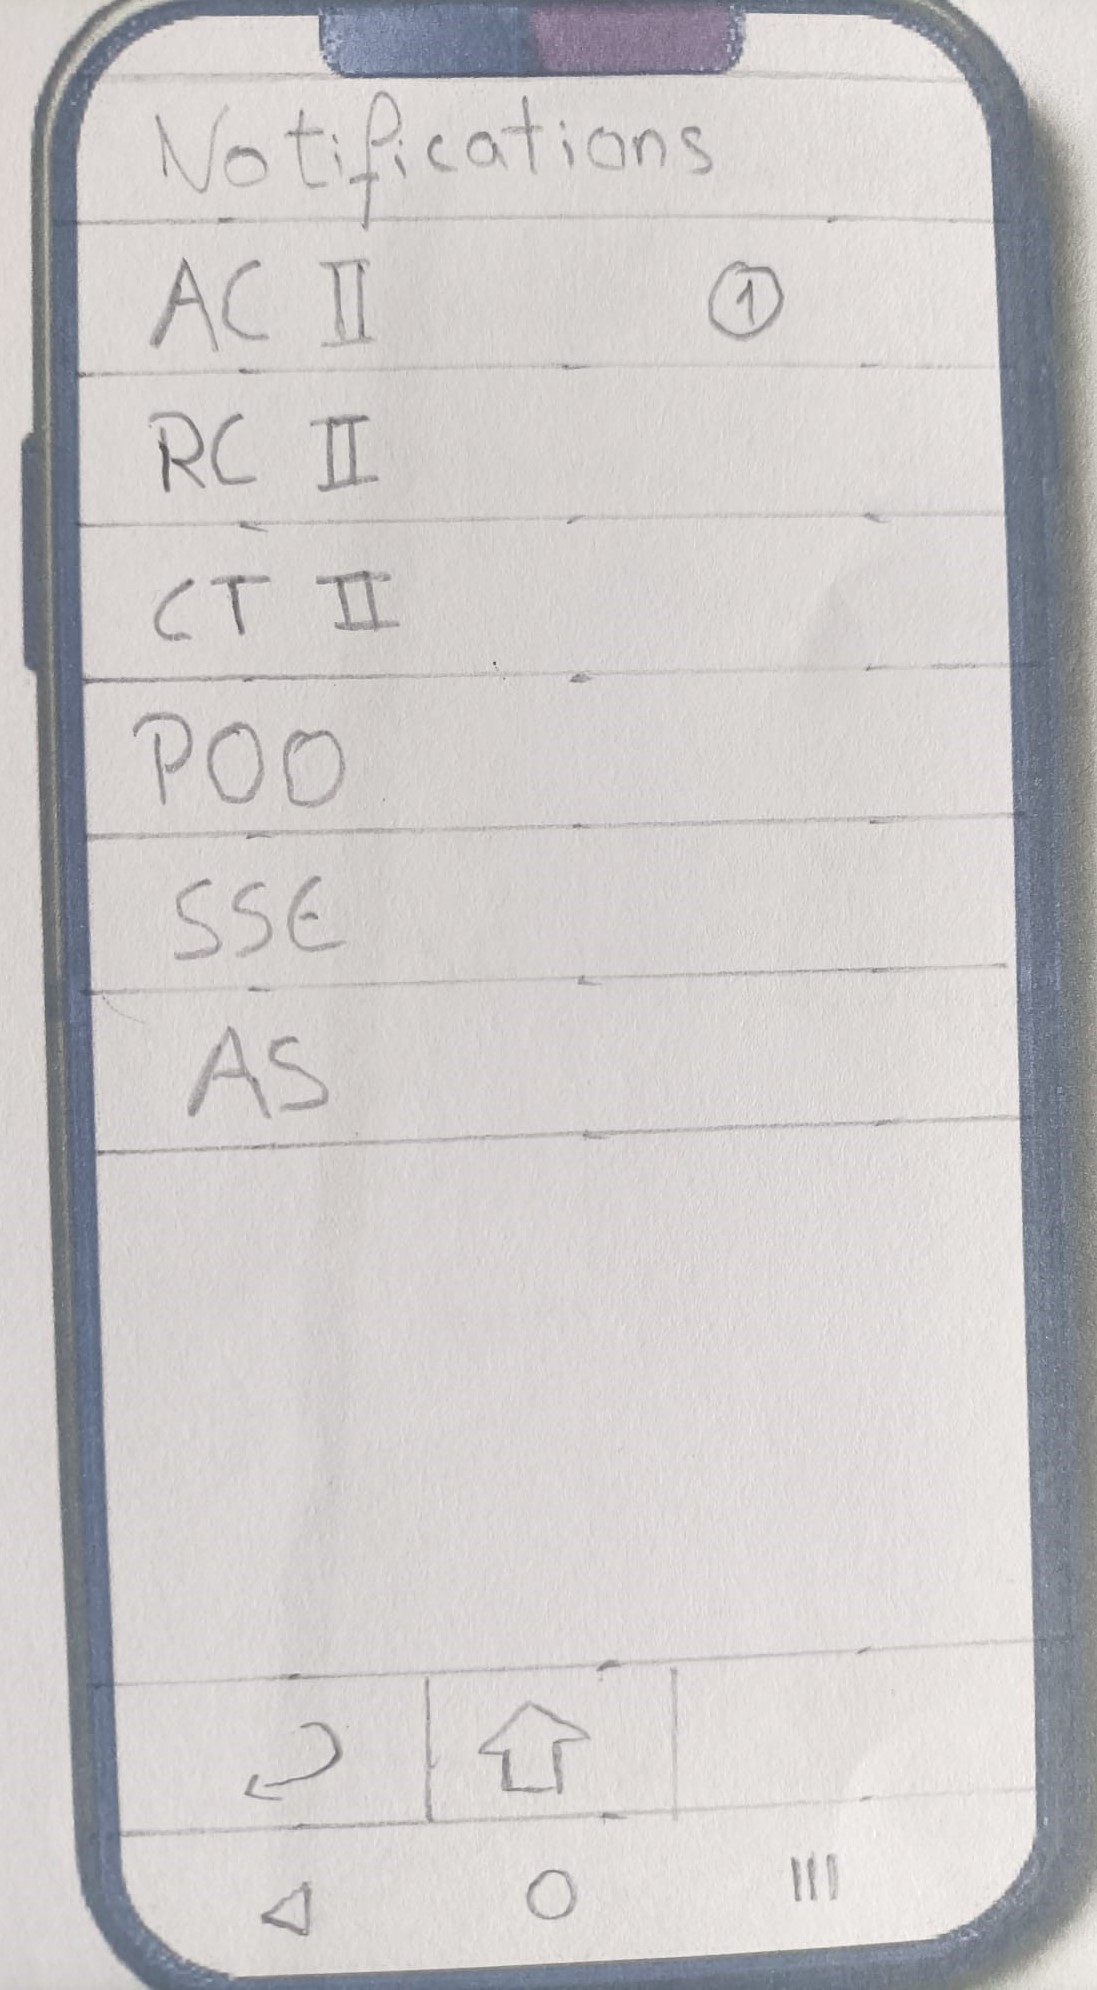 Notifications
AC II 1
RC II
CT II
POO
SSE
AS